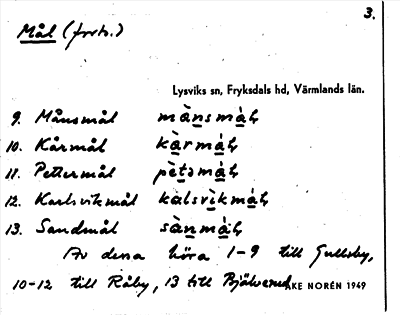 3.
Mål (forts.)
Lysviks sn, Fryksdals hd, Värmlands län.
9. Månsmål mànsmáḷ
10. Kårmål kàrmáḷ
11. Pettermål pètəmáḷ
12. Karlsvikmål kàlsvìkmáḷ
13. Sandmål sànmáḷ
Av dessa höra 1-9 till Gullsby,
10-12 till Råby, 13 till
ÅKE NORÉN 1949